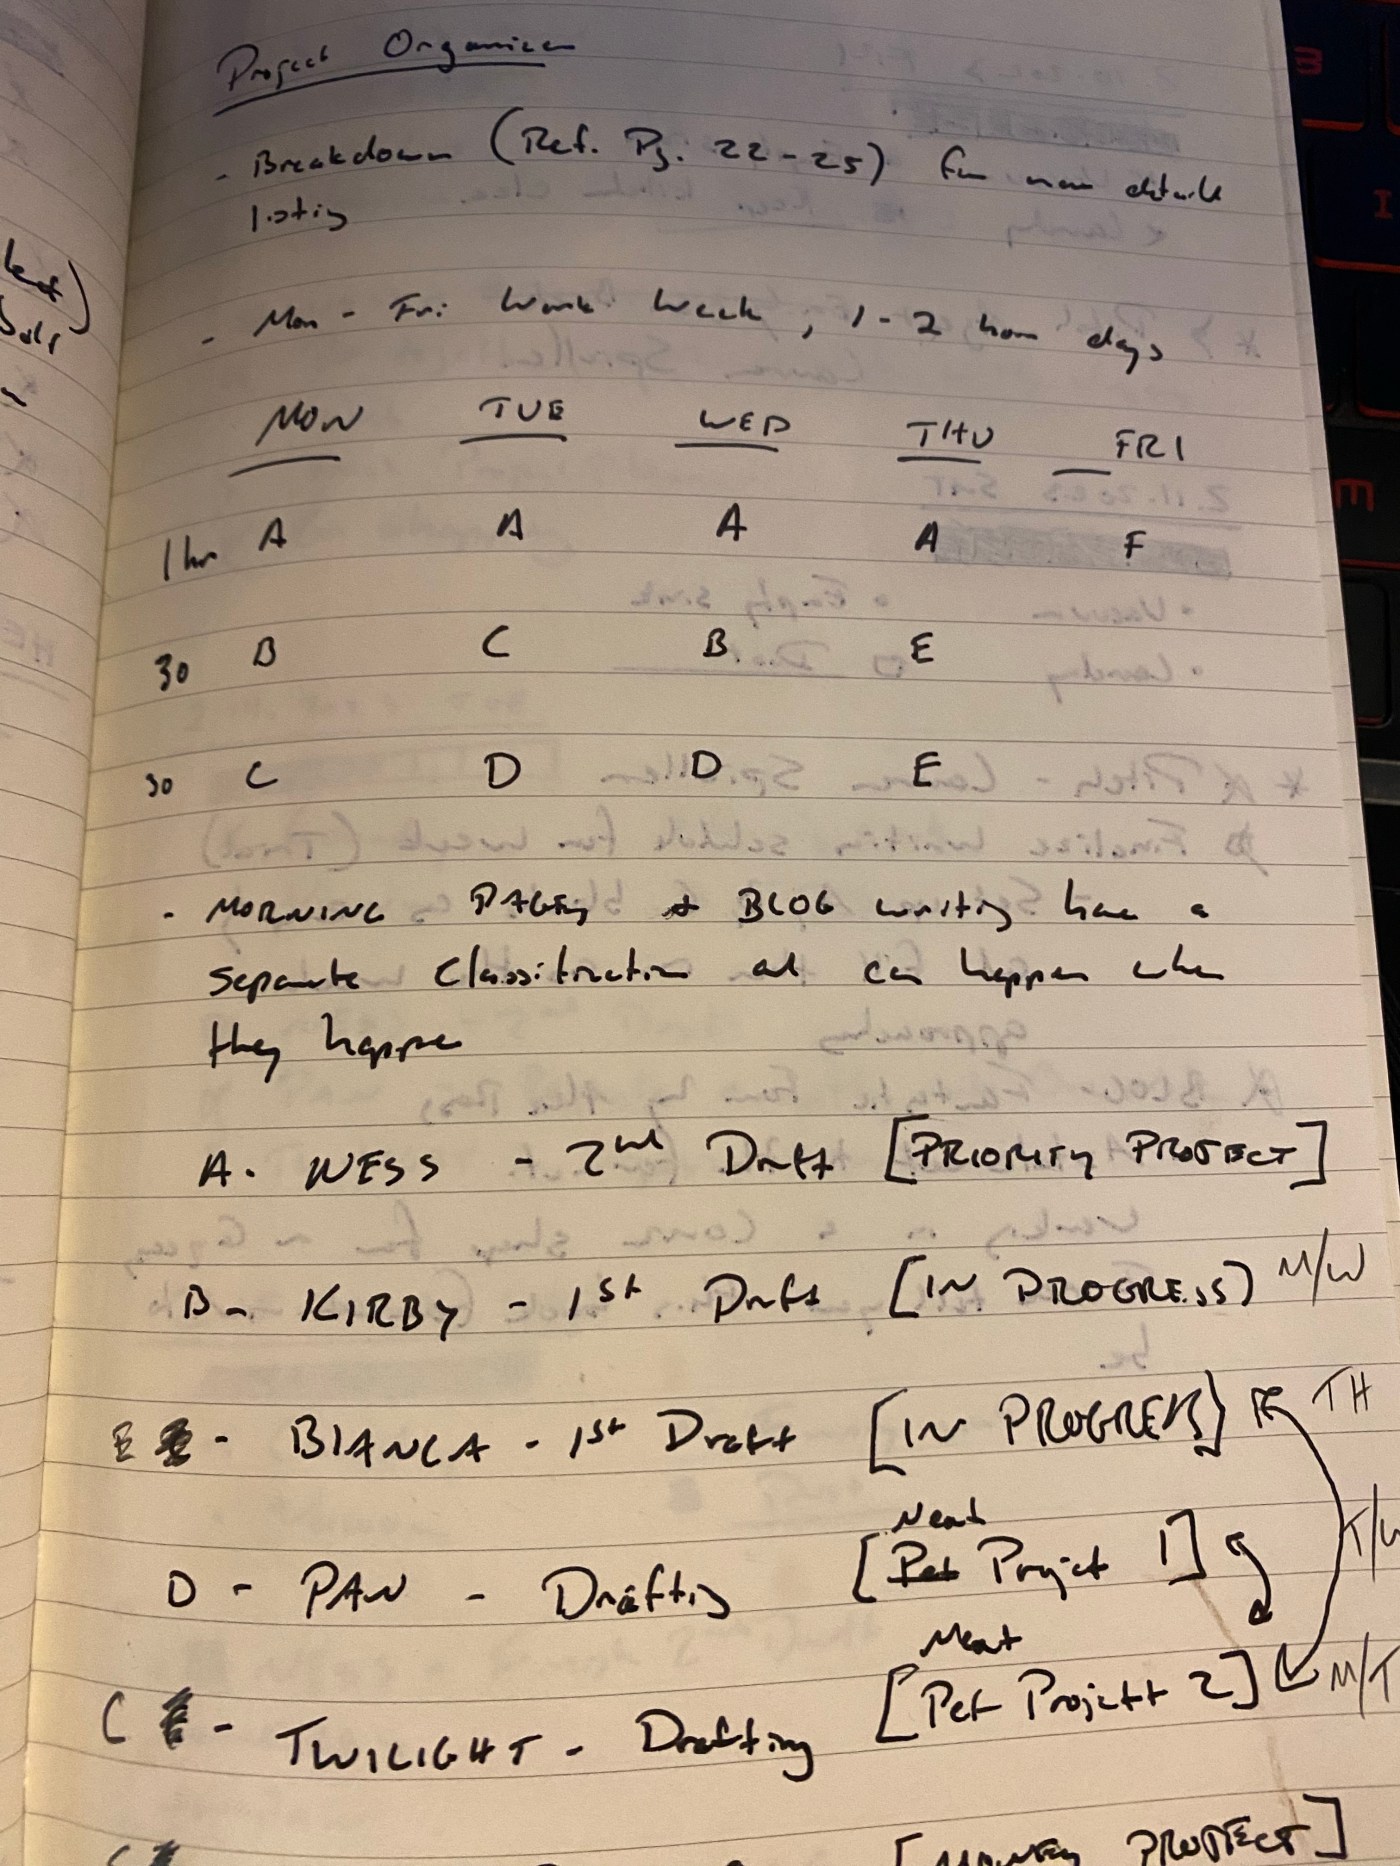 Project Organizer
- Breakdown (Ref. Pg. 22-25) for more details
listing
- Mon - Fri Work Week, 1-2 hour days
MON TUE WED THU FRI
1hr A A A A F
30 B C B E
30 C D D E
- MORNING PAGES + BLOG writing have a
separate classification and can happen when
they happen
A. NESS - 2nd Draft [PRIORITY PROJECT]
B - KIRBY - 1st Draft [IN PROGRESS) M/W
E - BIANCA - 1st Draft [IN PROGRESS] TH
Next
D - PAN - Drafting [Pet Project 1] T/W
Next
C - TWILIGHT - Drafting [Pet Project 2] M/T
PROJECT]